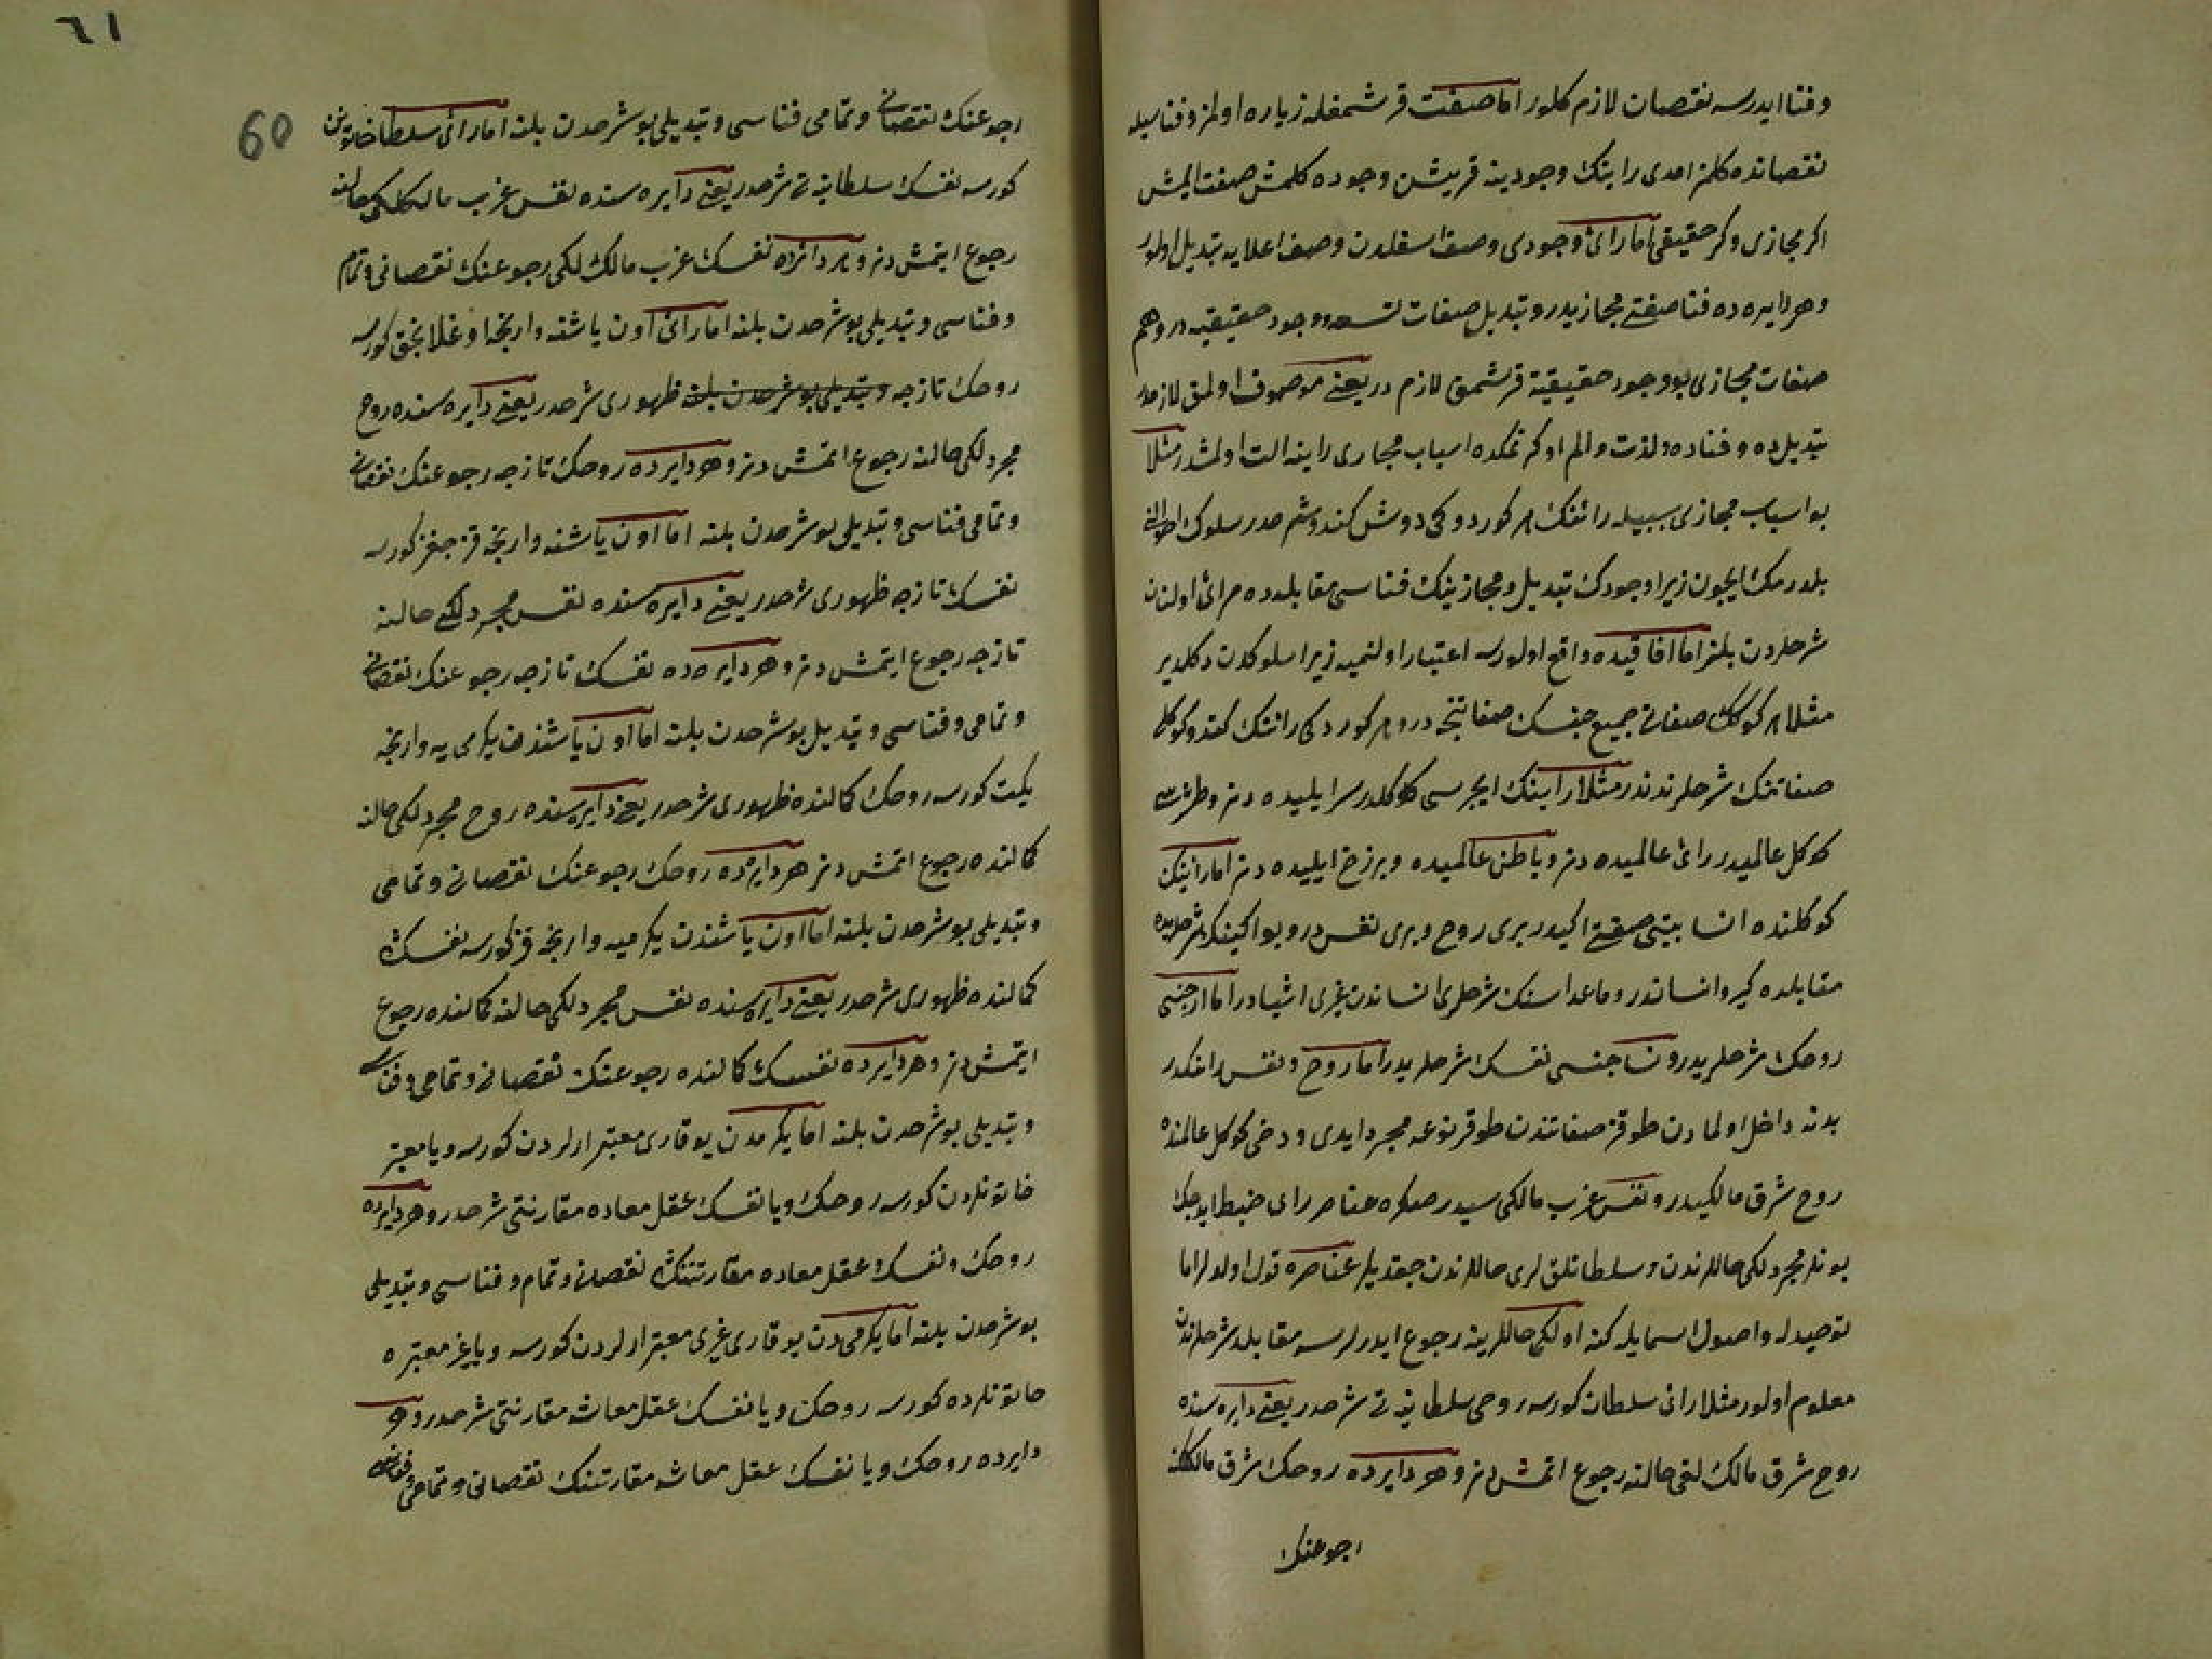 وفنا ايدرسه نقصان لازم كلور اما صفت قرشمغله زياده اولمز وفناسيله
نقصانده كلمز امدى رايتك وجودينه قريشن وجوده كلمش صفت ايمش
اكر مجازى وكر حقيقى اما رائى وجودى وصف اسفلدن وصف اعلايه تبديل اولور
وهر دايره ده فنا صفتى مجازيدر وتبديل صفات ووجود حقيقيه در وهم
صفات مجازى بو وجود حقيقيه قرشمق لازم در يعنى موصوف اولمق لازمدر
تبديل ده وفناده ولذت والم اوكرنمكده اسباب مجازى رايته الت اولمشدر مثلا
بو اسباب مجازى سببيله رائنك هر كوردوكى دوش كندو شرحدر سلوك احوالنى
بلدرمك ايچون زيرا وجودك تبديل ومجازينك فناسى مقابلده مرائى اولنان
شرحلردن بلنر اما افاقيده واقع اولورسه اعتبار اولنميه زيرا سلوكدن دكلدير
مثلا هر كوكلك صفاتى جميع جنسك صفاتيچه در وهر كوردكى رائنك كندو كوكلى
صفاتنك شرحلرندندر مثلا راينك ايچرسى كوكلدر سرايليده دنر وطشرسى
كوكل عالميدر رائى عالميده دنر وباطن عالميده وبرزخ ايليده دنر اما راينك
كوكلنده انسانيتى صفتى ايكيدر برى روح وبرى نفسدر وبو ايكينك شرحلريده
مقابلده كيرو انساندر وماعداسنك شرحلرى انساندن غيرى اشيادر اما ار جنسى
روحك شرحلريدر ونسا جنسى نفسك شرحلريدر اما روح ونفس راغكدر
بدنه داخل اولمادن طوقز صفاتندن طوقز نوعه مجرد ايدى ودخى كوكل عالمنده
روح شرق مالكيدر ونفس غرب مالكى سيدر صكره عناصر راى ضبط ايديجك
بونلر مجردلكى حاللرندن وسلطانلق لرى حاللرندن چقديلر عناصره قول اولديلر اما
توحيدله واصول اسمايله كنه اولكى حاللرينه رجوع ايدرلرسه مقابلده شرحلرندن
معلوم اولور مثلا رائى سلطان كورسه روحى سلطانيتى شرحدر يعنى دايره سنده
روح شرق مالك لغى حالنه رجوع اتمش دنر وهر دايرده روحك شرق مالكلكنه
رجوعنك
٦١
60
رجوعنك نقصانى وتمامى فناسى وتبديلى بو شرحدن بلنه اما رائى سلطان خاتونين
كورسه نفسك سلطانيتى شرحدر يعنى دايره سنده نفس غرب مالكلكى حالنه
رجوع ايتمش دنر وهر دائره ده نفسك غرب مالك لكى رجوعنك نقصانى وتمام
وفناسى وتبديلى بو شرحدن بلنه اما رائى اون ياشنه وارنجه اوغلانجق كورسه
روحك تازجه وتبديلى بو شرحدن بلنه ظهورى شرحدر يعنى دايره سنده روح
مجردلكى حالنه رجوع اتمش دنر وهر دايرده روحك تازجه رجوعنك نقصانى
وتمامى فناسى وتبديلى بو شرحدن بلنه اما اون ياشنه وارنجه قزجغز كورسه
نفسك تازجه ظهورى شرحدر يعنى دايره سنده نفس مجردلكى حالنه
تازجه رجوع ايتمش دنر وهر دايره ده نفسك تازجه رجوعنك نقصانى
وتمامى وفناسى وتبديل بو شرحدن بلنه اما اون ياشندن يكرمى يه وارنجه
يكت كورسه روحك كمالنده ظهورى شرحدر يعنى دايره سنده روح مجردلكى حالنه
كمالنده رجوع اتمش دنر هر دايرده روحك رجوعنك نقصانى وتمامى
وتبديلى بو شرحدن بلنه اما اون ياشندن يكرميه وارنجه قز كورسه نفسك
كمالنده ظهورى شرحدر يعنى دايره سنده نفس مجردلكى حالنه كمالنده رجوع
ايتمش دنر وهر دايرده نفسك كمالنده رجوعنك نقصانى وتمامى وفناسى
وتبديلى بو شرحدن بلنه اما يكرمدن يوقارى معتبر ارلردن كورسه ويا معتبر
خاتونلردن كورسه روحك ويا نفسك عقل معاده مقارنتى شرحدر وهر دايرده
روحك ونفسك وعقل معاده مقارنتنك نقصانى وتمام وفناسى وتبديلى
بو شرحدن بلنه اما يكرمى دن يوقارى غيرى معتبر ارلردن كورسه ويا غير معتبره
خاتونلرده كورسه روحك ويا نفسك عقل معاشه مقارنتى شرحدر وهر
دايرده روحك ويا نفسك عقل معاشه مقارنتنك نقصانى وتمامى وفناسى